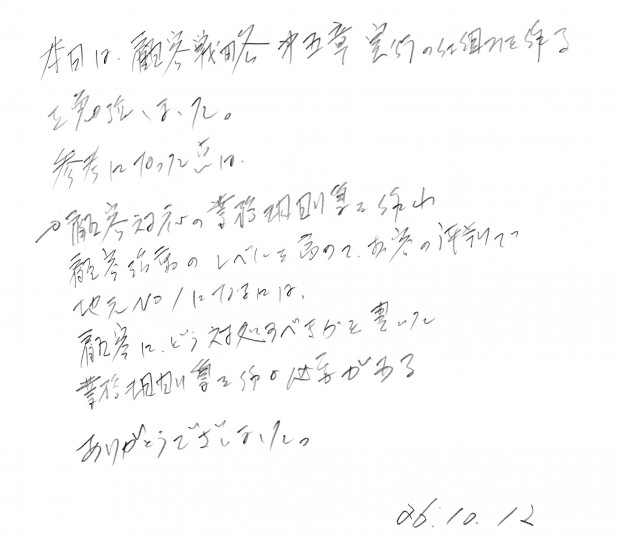 本日は、顧客戦略 第五章 実行の仕組みを作る
を勉強いました。
参考になった点は、
顧客対応の業務規則集を作れ
顧客活動のレベルを高めて、お客の評判で
地元NO1になるには、
顧客に、どう対処すべきかを書いた
業務規則集を作る必要がある
ありがとうございました。
26.10.12